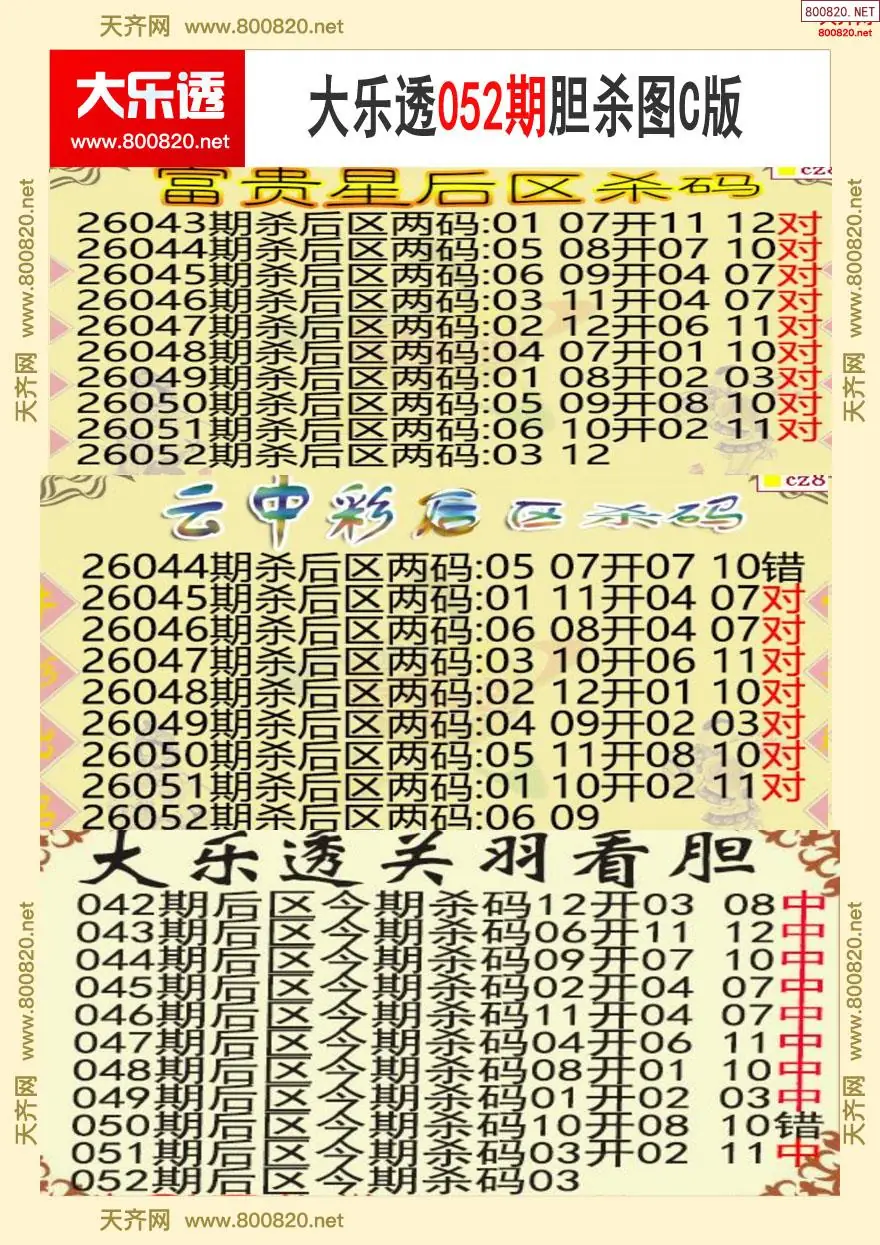 800820.NET
天齐网 www.800820.net
800820.net
大乐透
www.800820.net
大乐透052期胆杀图C版
富贵星后区杀码
26043期杀后区两码:01 07开11 12对
26044期杀后区两码:05 08开07 10对
26045期杀后区两码:06 09开04 07对
26046期杀后区两码:03 11开04 07对
26047期杀后区两码:02 12开06 11对
26048期杀后区两码:04 07开01 10对
26049期杀后区两码:01 08开02 03对
26050期杀后区两码:05 09开08 10对
26051期杀后区两码:06 10开02 11对
26052期杀后区两码:03 12
云中彩后区杀码
26044期杀后区两码:05 07开07 10错
26045期杀后区两码:01 11开04 07对
26046期杀后区两码:06 08开04 07对
26047期杀后区两码:03 10开06 11对
26048期杀后区两码:02 12开01 10对
26049期杀后区两码:04 09开02 03对
26050期杀后区两码:05 11开08 10对
26051期杀后区两码:01 10开02 11对
26052期杀后区两码:06 09
大乐透关羽看胆
042期后区今期杀码12开03 08中
043期后区今期杀码06开11 12中
044期后区今期杀码09开07 10中
045期后区今期杀码02开04 07中
046期后区今期杀码11开04 07中
047期后区今期杀码04开06 11中
048期后区今期杀码08开01 10中
049期后区今期杀码01开02 03中
050期后区今期杀码10开08 10错
051期后区今期杀码03开02 11中
052期后区今期杀码03
天齐网 www.800820.net
天齐网 www.800820.net
天齐网 www.800820.net
天齐网 www.800820.net
天齐网 www.800820.net